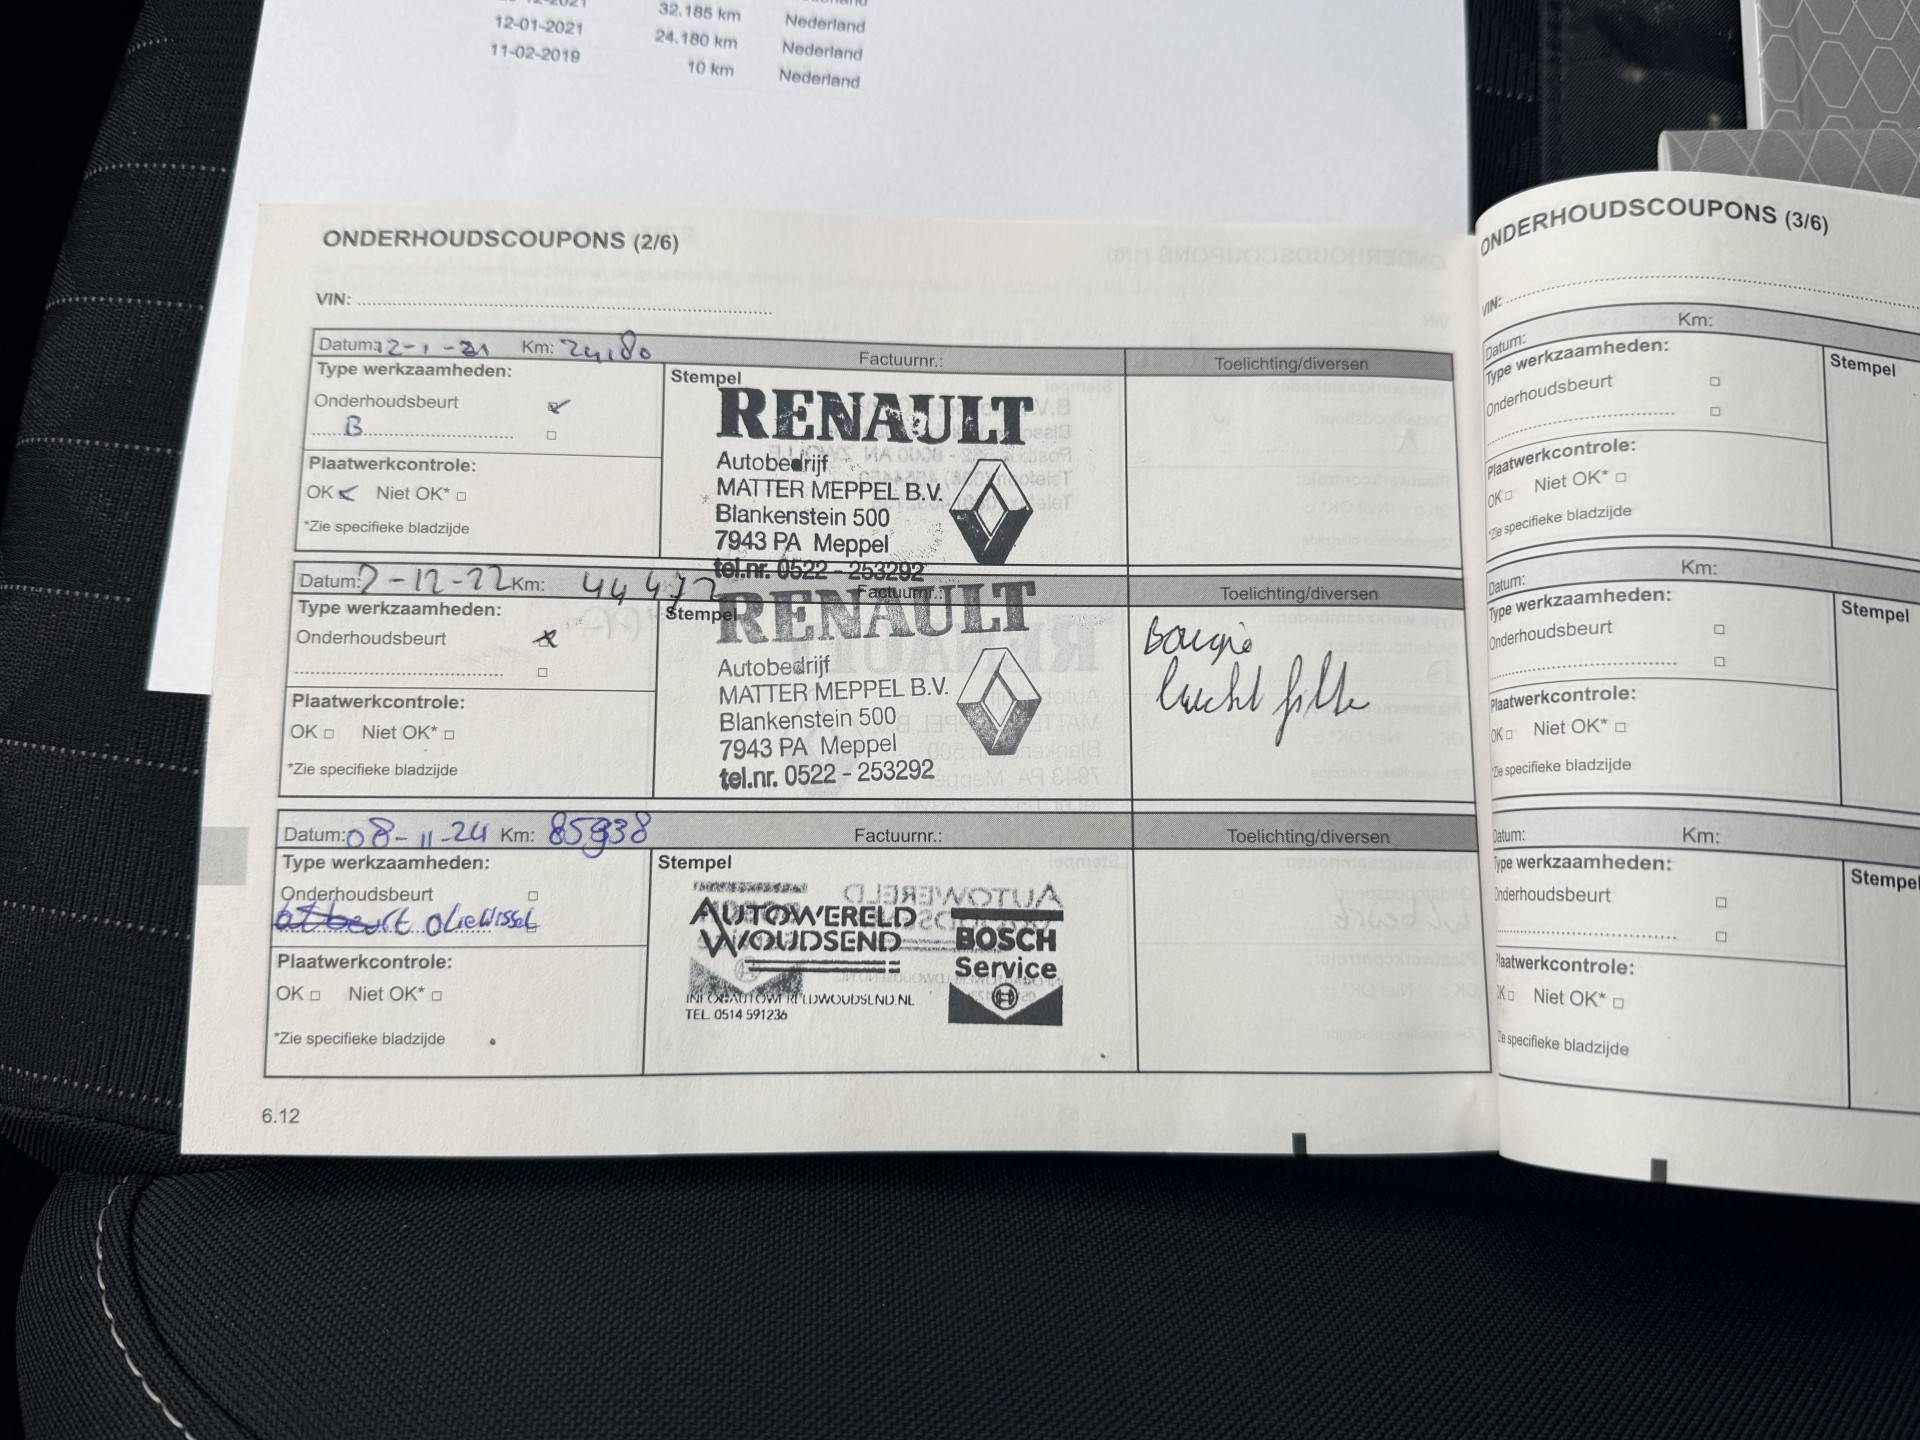 32.185 km Nederland
12-01-2021 24.180 km Nederland
11-02-2019 10 km Nederland
ONDERHOUDSCOUPONS (2/6)
VIN:
Datum: 12-1-21 Km: 24180 Factuurnr.: Toelichting/diversen
Type werkzaamheden:
Onderhoudsbeurt
B
Plaatwerkcontrole:
OK Niet OK*
*Zie specifieke bladzijde
Stempel
RENAULT
Autobedrijf
MATTER MEPPEL B.V.
Blankenstein 500
7943 PA Meppel
tel.nr. 0522 - 253292
Datum: 7-12-22 Km: 44472 Factuurnr.: Toelichting/diversen
Type werkzaamheden:
Onderhoudsbeurt
Plaatwerkcontrole:
OK Niet OK*
*Zie specifieke bladzijde
Stempel
RENAULT
Autobedrijf
MATTER MEPPEL B.V.
Blankenstein 500
7943 PA Meppel
tel.nr. 0522 - 253292
Bougie
lucht filte
Datum: 08-11-24 Km: 85938 Factuurnr.: Toelichting/diversen
Type werkzaamheden:
Onderhoudsbeurt
oliewissel
Plaatwerkcontrole:
OK Niet OK*
*Zie specifieke bladzijde
Stempel
AUTOWERELD
WOUDSEND
INFO@AUTOWERELDWOUDSEND.NL
TEL. 0514 591236
BOSCH
Service
6.12
ONDERHOUDSCOUPONS (3/6)
VIN:
Datum: Km:
Type werkzaamheden:
Onderhoudsbeurt
Plaatwerkcontrole:
OK Niet OK*
*Zie specifieke bladzijde
Stempel
Datum: Km:
Type werkzaamheden:
Onderhoudsbeurt
Plaatwerkcontrole:
OK Niet OK*
*Zie specifieke bladzijde
Stempel
Datum: Km:
Type werkzaamheden:
Onderhoudsbeurt
Plaatwerkcontrole:
OK Niet OK*
*Zie specifieke bladzijde
Stempel